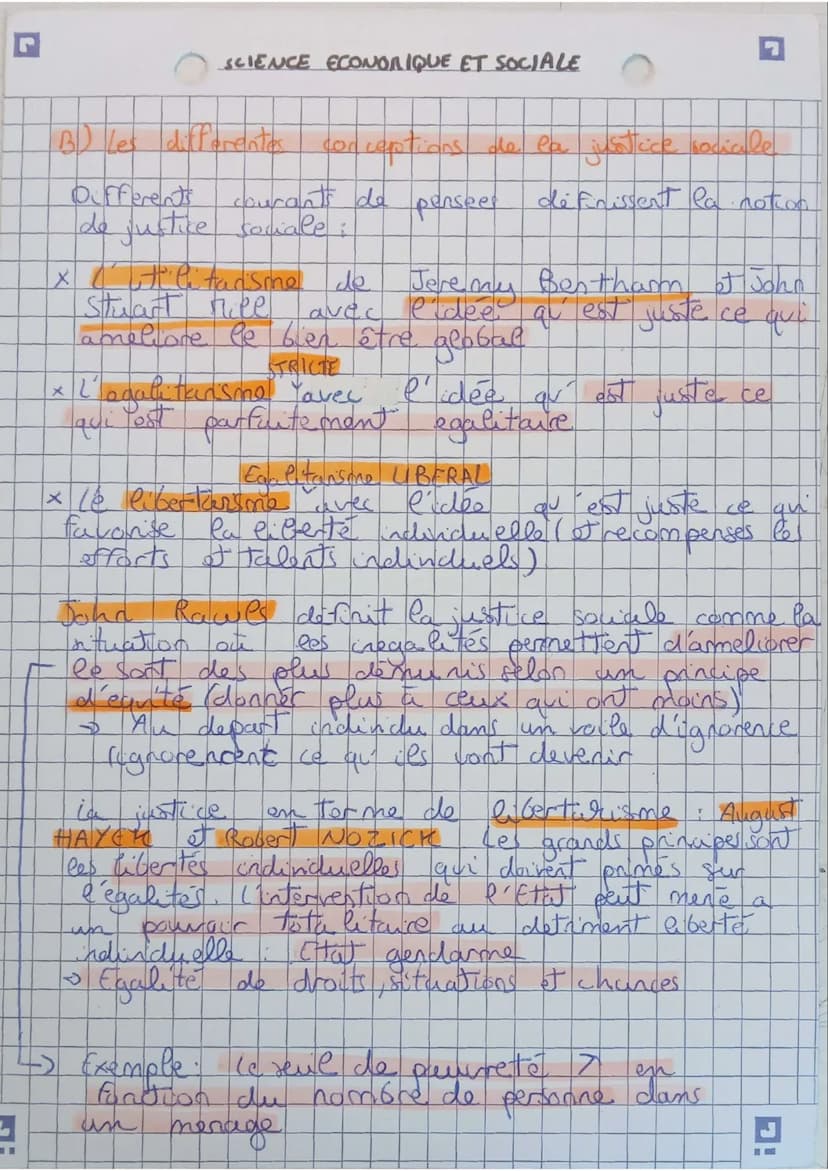 SCIENCE ECONOMIQUE ET SOCIALE
B) Les differentes conceptions de la justice sociale
Differents courants de pensees définissent la notion
de justice sociale :
x L'utilitarisme de Jeremy Bentham et John
Stuart Mill avec l'idée qu'est juste ce qui
améliore le bien être global
STRICTE
x L'egalitarisme avec l'idée qu'est juste ce
qui est parfaitement egalitaire
Egalitarisme LIBERAL
x Le libertarisme avec l'idée qu'est juste ce qui
favorise la liberté individuelle (et recompenses les
efforts et talents individuels)
John Rawls définit la justice sociale comme la
situation où les inegalités permettent d'ameliorer
le sort des plus démunis selon un principe
d'équité (donner plus à ceux qui ont moins)
→ Au depart individu dans un voile d'ignorence
(ignorencent ce qu'ils vont devenir
La justice en forme de libertarisme : August
HAYEK et Robert NOZICK Les grands principes sont
les libertés individuelles qui doivent primés sur
l'égalités. L'intervention de l'Etat peut mené a
un pouvoir totalitaire au detriment liberté
individuelle : Etat gendarme
→ Egalité de droits, situations et chances
→ Exemple : Le seuil de pauvreté ↗ en
fonction du nombre de personne dans
un menage